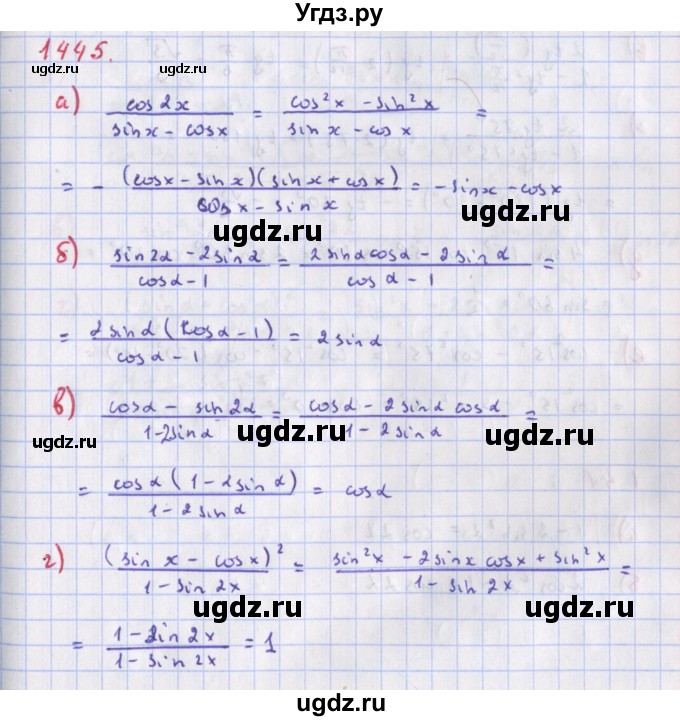 Угдз.ру
1445.
ugdz.ru ugdz.ru ugdz.ru
а) cos 2x / (sin x - cos x) = (cos²x - sin²x) / (sin x - cos x) =
= - (cos x - sin x)(sin x + cos x) / (cos x - sin x) = - sin x - cos x
ugdz.ru ugdz.ru
б) (sin 2α - 2 sin α) / (cos α - 1) = (2 sin α cos α - 2 sin α) / (cos α - 1) =
ugdz.ru
= 2 sin α (cos α - 1) / (cos α - 1) = 2 sin α
ugdz.ru
в) (cos α - sin 2α) / (1 - 2 sin α) = (cos α - 2 sin α cos α) / (1 - 2 sin α) =
ugdz.ru ugdz.ru ugdz.ru
= cos α (1 - 2 sin α) / (1 - 2 sin α) = cos α
ugdz.ru
г) (sin x - cos x)² / (1 - sin 2x) = (sin²x - 2 sin x cos x + sin²x) / (1 - sin 2x) =
ugdz.ru ugdz.ru
= (1 - sin 2x) / (1 - sin 2x) = 1
ugdz.ru ugdz.ru
ugdz.ru